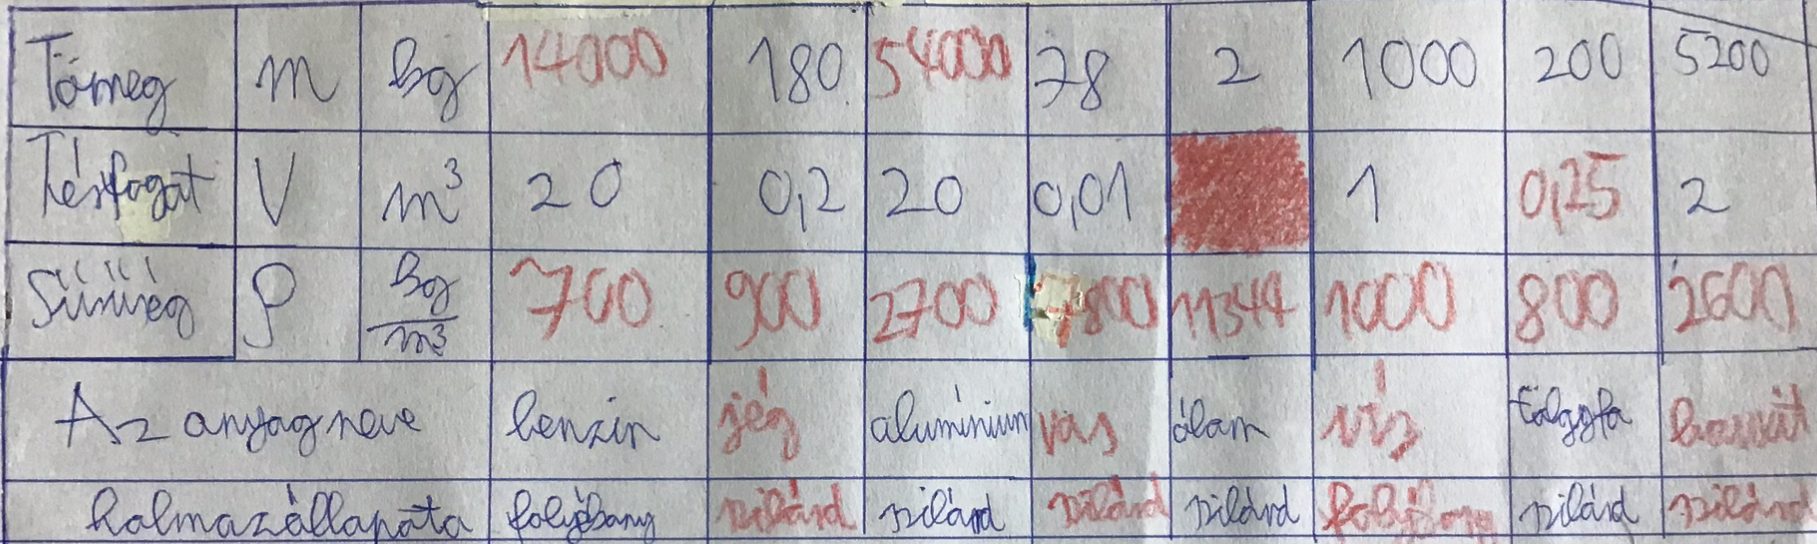 Tömeg m kg 14000 180 54000 78 2 1000 200 5200
Térfogat V m³ 20 0,2 20 0,01 1 0,25 2
Sűrűség ρ kg/m³ 700 900 2700 7800 11344 1000 800 2600
Az anyag neve benzin jég alumínium vas ólom víz tölgyfa kvarcit
halmazállapota folyékony szilárd szilárd szilárd szilárd folyékony szilárd szilárd